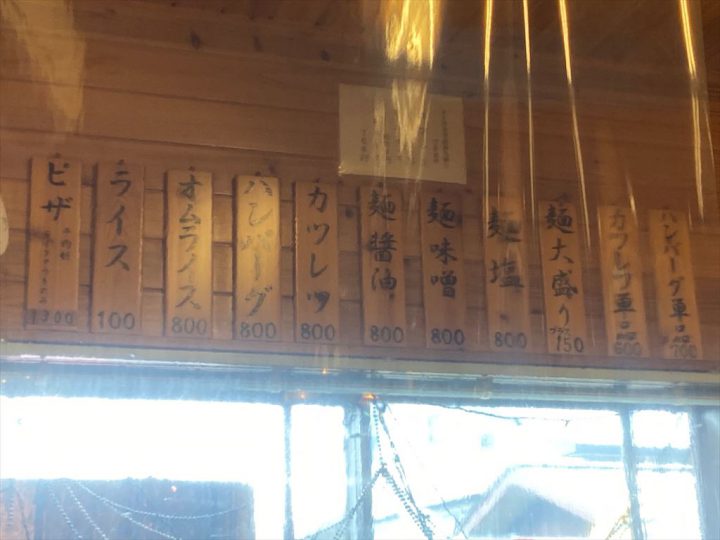 ハンバーグ単品
700
カツレツ単品
600
麺大盛り
プラス
150
麺塩
800
麺味噌
800
麺醤油
800
カツレツ
800
ハンバーグ
800
オムライス
800
ライス
100
ピザ
1300